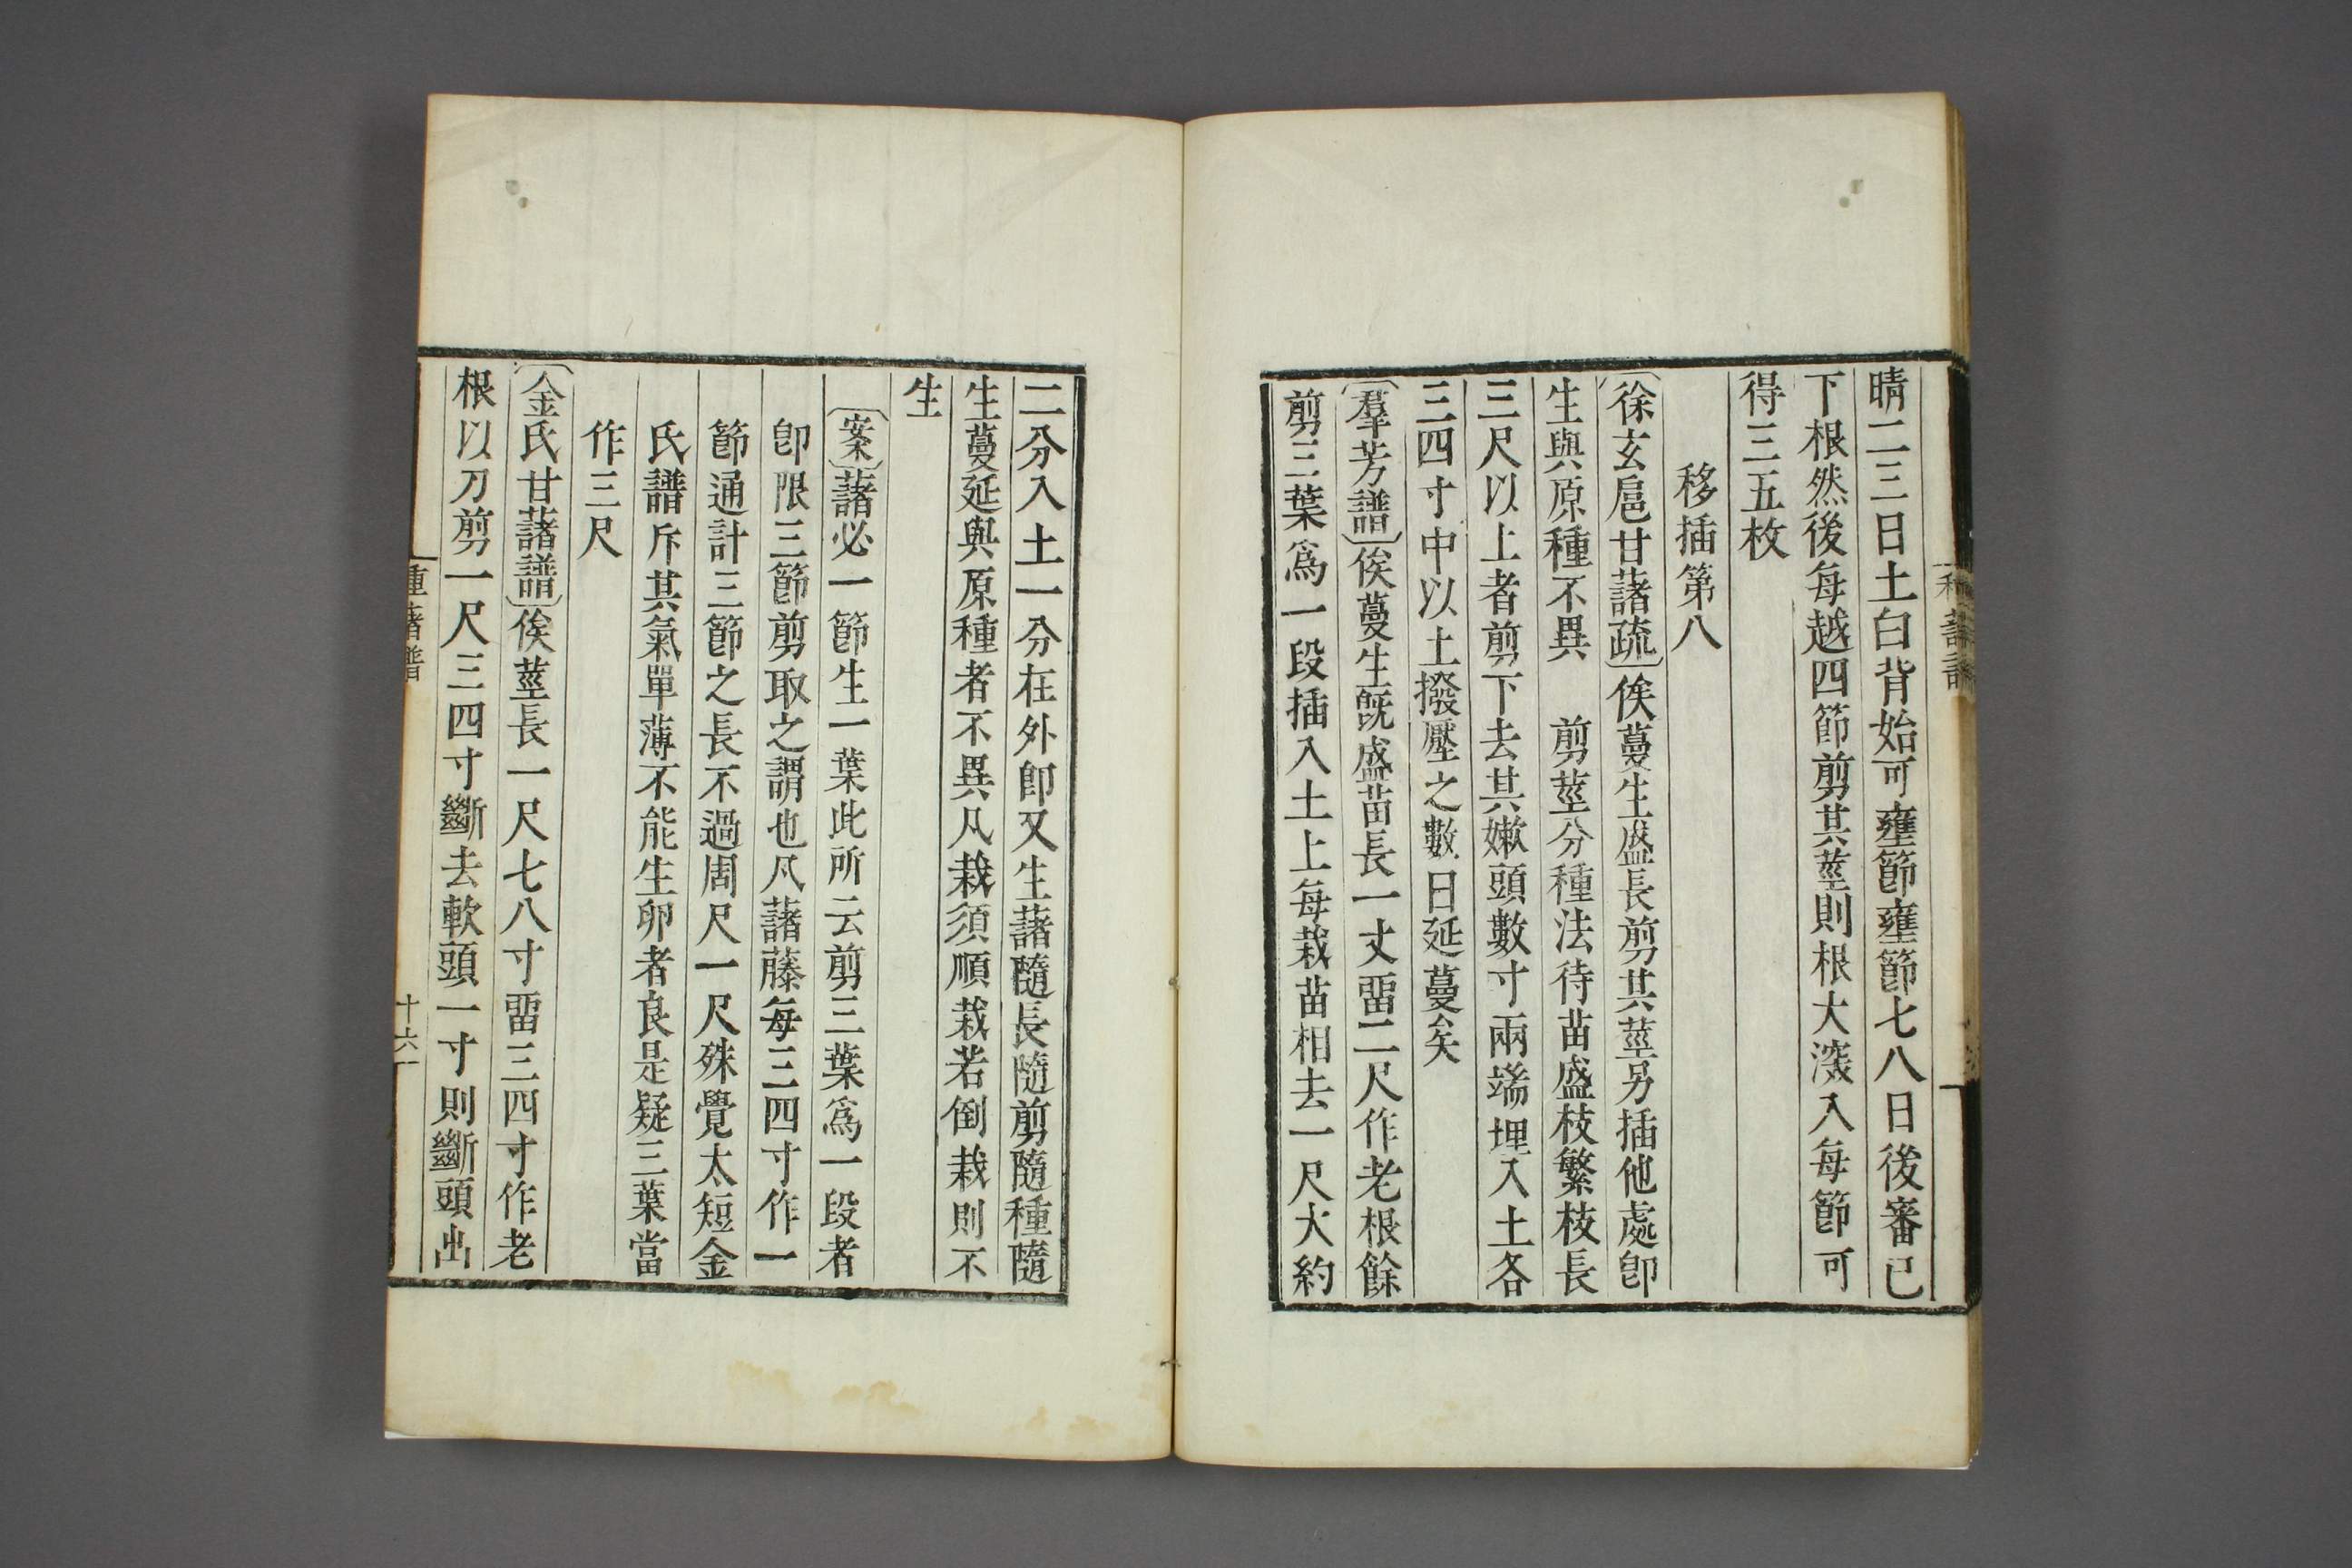 晴二三日土白背始可壅節壅節七八日後審已
下根然後每越四節剪其莖則根大深入每節可
得三五枚
移插第八
〔徐玄扈甘藷疏〕俟蔓生盛長剪其莖另插他處卽
生與原種不異　剪莖分種法待苗盛枝繁枝長
三尺以上者剪下去其嫩頭數寸兩端埋入土各
三四寸中以土撥壓之數日延蔓矣
〔羣芳譜〕俟蔓生旣盛苗長一丈畱二尺作老根餘
剪三葉爲一段插入土上每栽苗相去一尺大約
二分入土一分在外卽又生藷隨長隨剪隨種隨
生蔓延與原種者不異凡栽須順栽若倒栽則不
生
〔案〕藷必一節生一葉此所云剪三葉爲一段者
卽限三節剪取之謂也凡藷藤每三四寸作一
節通計三節之長不過周尺一尺殊覺太短金
氏譜斥其氣單薄不能生卵者良是疑三葉當
作三尺
〔金氏甘藷譜〕俟莖長一尺七八寸畱三四寸作老
根以刀剪一尺三四寸斷去軟頭一寸則斷頭出
種藷譜
十六